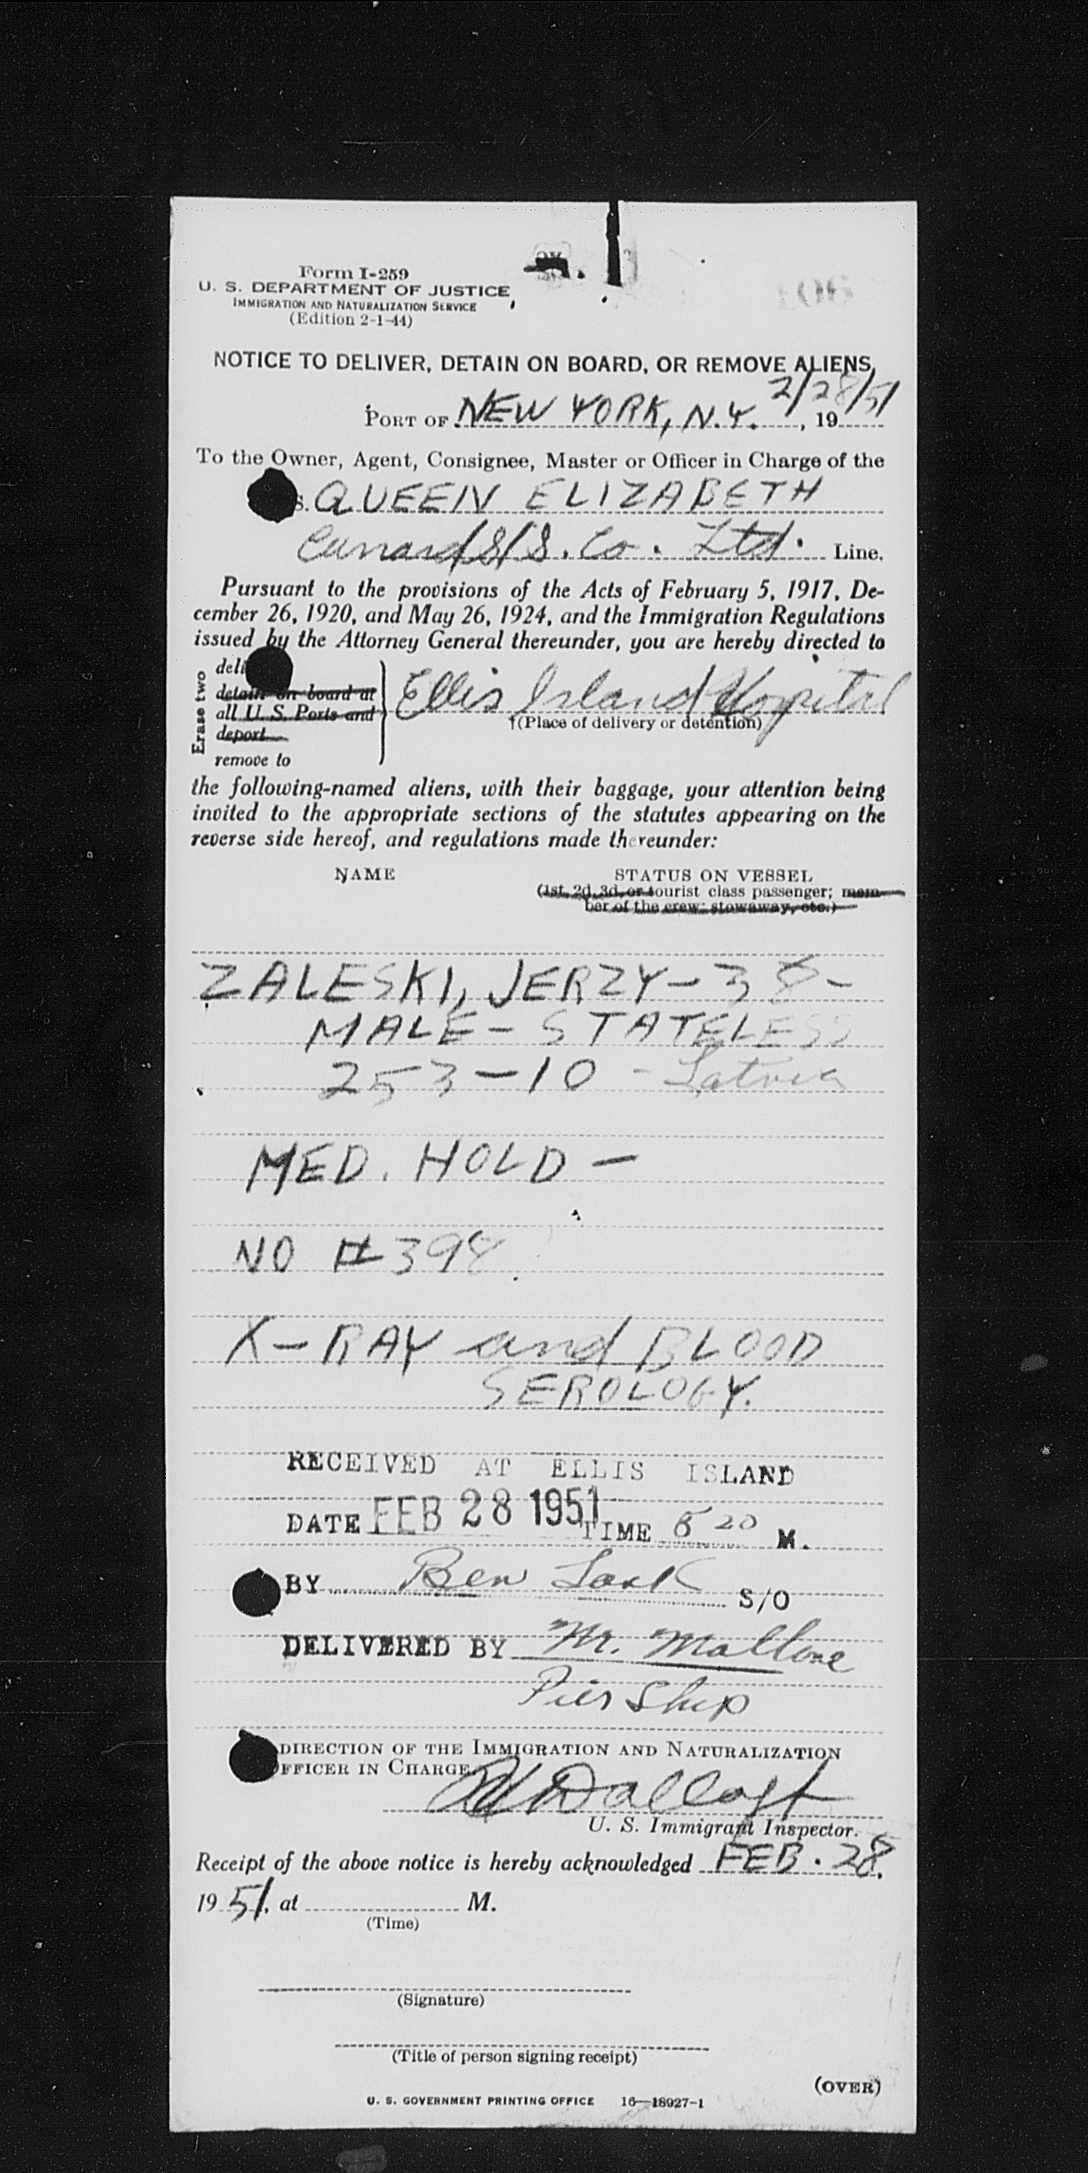 Form I-259
U. S. DEPARTMENT OF JUSTICE
IMMIGRATION AND NATURALIZATION SERVICE
(Edition 2-1-44)
NOTICE TO DELIVER, DETAIN ON BOARD, OR REMOVE ALIENS
PORT OF NEW YORK, N.Y. 2/28/51, 19
To the Owner, Agent, Consignee, Master or Officer in Charge of the
S. QUEEN ELIZABETH
Cunard S/S. Co. Ltd. Line.
Pursuant to the provisions of the Acts of February 5, 1917, De-
cember 26, 1920, and May 26, 1924, and the Immigration Regulations
issued by the Attorney General thereunder, you are hereby directed to
Erase two
deli
detain on board at
all U. S. Ports and
deport
remove to
Ellis Island Hospital
†(Place of delivery or detention)
the following-named aliens, with their baggage, your attention being
invited to the appropriate sections of the statutes appearing on the
reverse side hereof, and regulations made thereunder:
NAME STATUS ON VESSEL
(1st, 2d, 3d, or tourist class passenger; mem-
ber of the crew; stowaway, etc.)
ZALESKI, JERZY - 38 -
MALE - STATELESS
253-10 - Latvia
MED. HOLD -
NO # 398
X-RAY and BLOOD
SEROLOGY.
RECEIVED AT ELLIS ISLAND
DATE FEB 28 1951 TIME 5 20 M.
BY Ben S/O
DELIVERED BY Mr. Mallone
Pier Ship
DIRECTION OF THE IMMIGRATION AND NATURALIZATION
OFFICER IN CHARGE
U. S. Immigrant Inspector.
Receipt of the above notice is hereby acknowledged FEB. 28,
19 51, at M.
(Time)
(Signature)
(Title of person signing receipt)
(OVER)
U. S. GOVERNMENT PRINTING OFFICE 16—18927-1